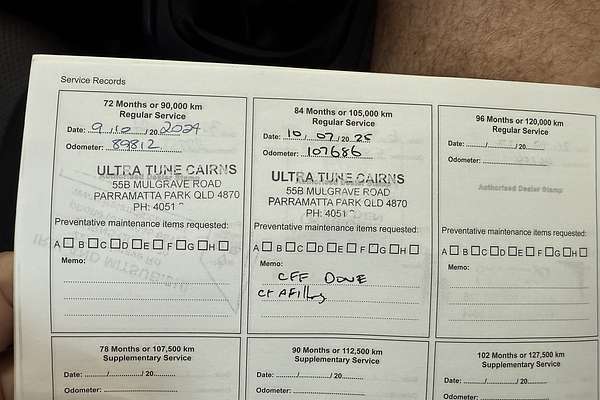 Service Records
72 Months or 90,000 km
Regular Service
Date: 9/10/20 2024
Odometer: 89812
ULTRA TUNE CAIRNS
55B MULGRAVE ROAD
PARRAMATTA PARK QLD 4870
PH: 4051
Preventative maintenance items requested:
A B C D E F G H
Memo:
84 Months or 105,000 km
Regular Service
Date: 10/07/20 25
Odometer: 107686
ULTRA TUNE CAIRNS
55B MULGRAVE ROAD
PARRAMATTA PARK QLD 4870
PH: 4051
Preventative maintenance items requested:
A B C D E F G H
Memo:
CFF DONE
96 Months or 120,000 km
Regular Service
Date: ....../....../20......
Odometer:
Authorised Dealer Stamp
Preventative maintenance items requested:
A B C D E F G H
Memo:
78 Months or 107,500 km
Supplementary Service
Date: ....../....../20......
Odometer:
90 Months or 112,500 km
Supplementary Service
Date: ....../....../20......
Odometer:
102 Months or 127,500 km
Supplementary Service
Date: ....../....../20......
Odometer: